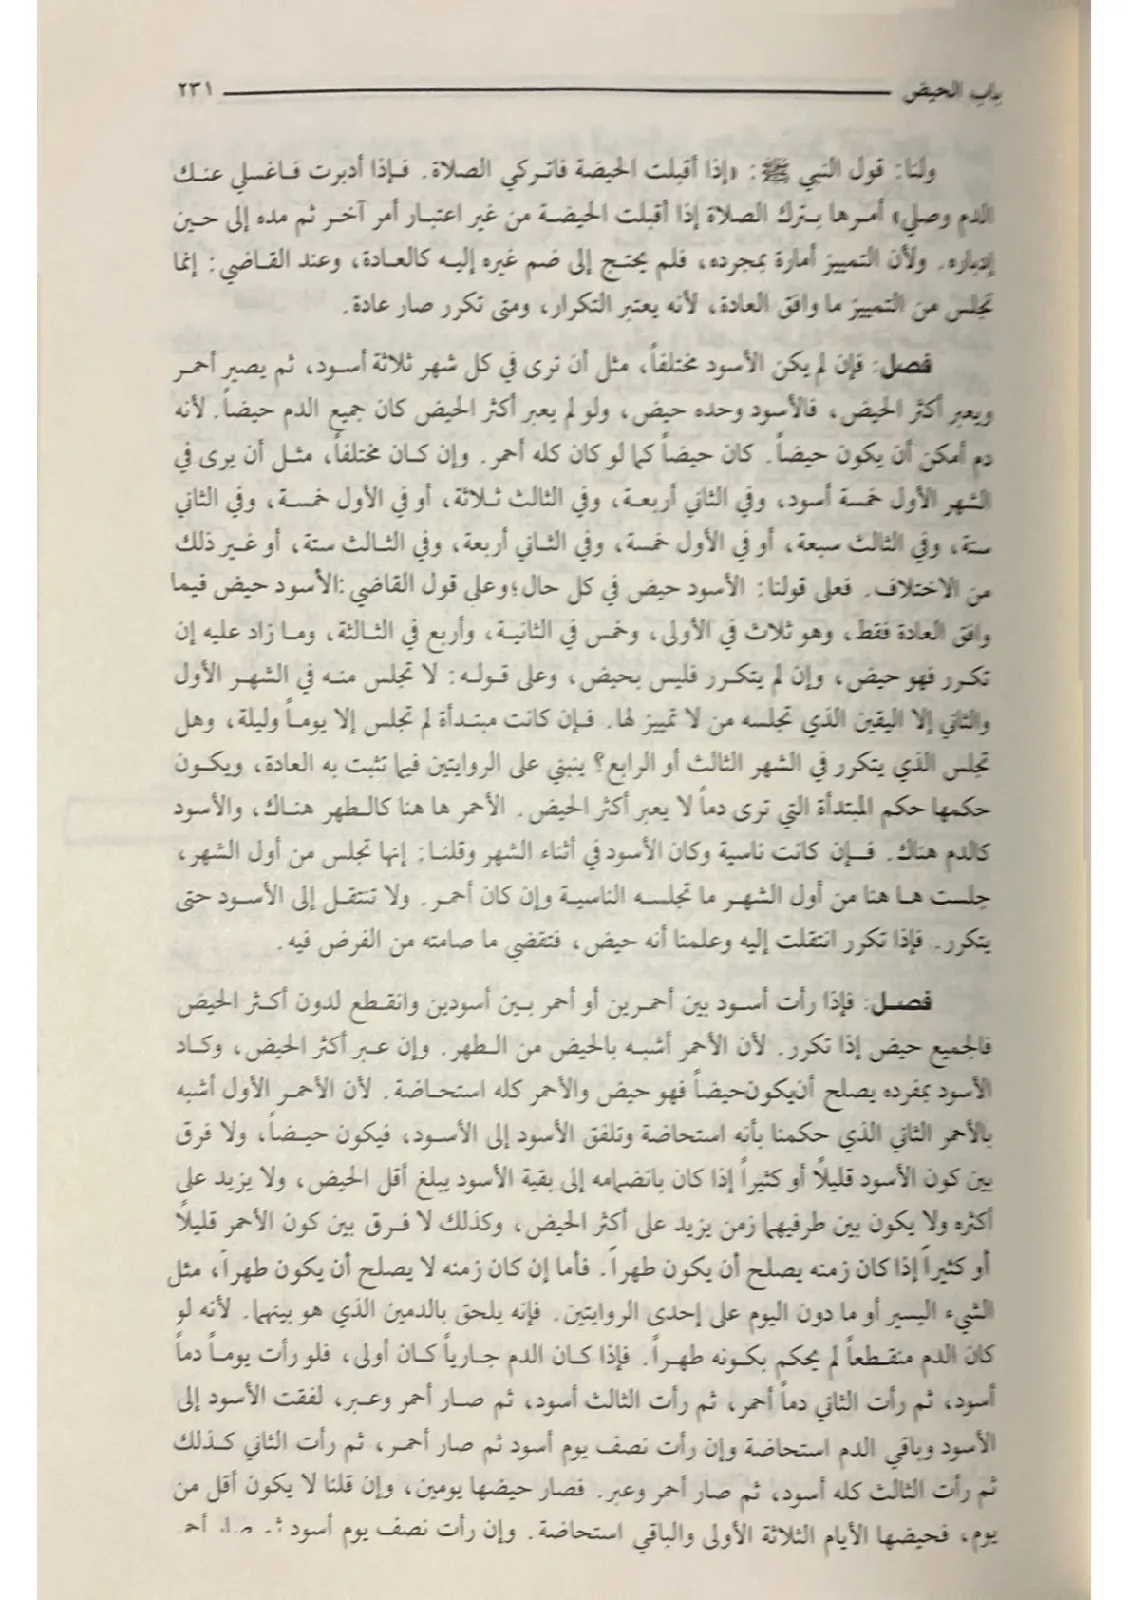 باب الحيض ٢٣١
ولنا: قول النبي ﷺ: «إذا أقبلت الحيضة فاتركي الصلاة. فإذا أدبرت فاغسلي عنك
الدم وصلي» أمرها بترك الصلاة إذا أقبلت الحيضة من غير اعتبار أمر آخر ثم مده إلى حين
إدباره. ولأن التمييز أمارة بمجرده، فلم يحتج إلى ضم غيره إليه كالعادة، وعند القاضي: إنما
تجلس من التمييز ما وافق العادة، لأنه يعتبر التكرار، ومتى تكرر صار عادة.
فصل: فإن لم يكن الأسود مختلفاً، مثل أن ترى في كل شهر ثلاثة أسود، ثم يصير أحمر
ويعبر أكثر الحيض، فالأسود وحده حيض، ولو لم يعبر أكثر الحيض كان جميع الدم حيضاً. لأنه
دم أمكن أن يكون حيضاً. كان حيضاً كما لو كان كله أحمر. وإن كان مختلفاً، مثل أن يرى في
الشهر الأول خمسة أسود، وفي الثاني أربعة، وفي الثالث ثلاثة، أو في الأول خمسة، وفي الثاني
ستة، وفي الثالث سبعة، أو في الأول خمسة، وفي الثاني أربعة، وفي الثالث ستة، أو غير ذلك
من الاختلاف. فعلى قولنا: الأسود حيض في كل حال؛وعلى قول القاضي :الأسود حيض فيما
وافق العادة فقط، وهو ثلاث في الأولى، وخمس في الثانية، وأربع في الثالثة، وما زاد عليه إن
تكرر فهو حيض، وإن لم يتكرر فليس بحيض، وعلى قوله: لا تجلس منه في الشهر الأول
والثاني إلا اليقين الذي تجلسه من لا تمييز لها. فإن كانت مبتدأة لم تجلس إلا يوماً وليلة، وهل
تجلس الذي يتكرر في الشهر الثالث أو الرابع؟ ينبني على الروايتين فيما تثبت به العادة، ويكون
حكمها حكم المبتدأة التي ترى دماً لا يعبر أكثر الحيض. الأحمر ها هنا كالطهر هناك، والأسود
كالدم هناك. فإن كانت ناسية وكان الأسود في أثناء الشهر وقلنا: إنها تجلس من أول الشهر،
جلست ها هنا من أول الشهر ما تجلسه الناسية وإن كان أحمر. ولا تنتقل إلى الأسود حتى
يتكرر. فإذا تكرر انتقلت إليه وعلمنا أنه حيض، فتقضي ما صامته من الفرض فيه.
فصل: فإذا رأت أسود بين أحمرين أو أحمر بين أسودين وانقطع لدون أكثر الحيض
فالجميع حيض إذا تكرر. لأن الأحمر أشبه بالحيض من الطهر. وإن عبر أكثر الحيض، وكاد
الأسود بمفرده يصلح أن‌يكون‌حيضاً فهو حيض والأحمر كله استحاضة. لأن الأحمر الأول أشبه
بالأحمر الثاني الذي حكمنا بأنه استحاضة وتلفق الأسود إلى الأسود، فيكون حيضاً، ولا فرق
بين كون الأسود قليلاً أو كثيراً إذا كان بانضمامه إلى بقية الأسود يبلغ أقل الحيض، ولا يزيد على
أكثره ولا يكون بين طرفيهما زمن يزيد على أكثر الحيض، وكذلك لا فرق بين كون الأحمر قليلاً
أو كثيراً إذا كان زمنه يصلح أن يكون طهراً. فأما إن كان زمنه لا يصلح أن يكون طهراً، مثل
الشيء اليسير أو ما دون اليوم على إحدى الروايتين. فإنه يلحق بالدمين الذي هو بينهما. لأنه لو
كان الدم منقطعاً لم يحكم بكونه طهراً. فإذا كان الدم جارياً كان أولى، فلو رأت يوماً دماً
أسود، ثم رأت الثاني دماً أحمر، ثم رأت الثالث أسود، ثم صار أحمر وعبر، لفقت الأسود إلى
الأسود وباقي الدم استحاضة وإن رأت نصف يوم أسود ثم صار أحمر، ثم رأت الثاني كذلك
ثم رأت الثالث كله أسود، ثم صار أحمر وعبر. فصار حيضها يومين، وإن قلنا لا يكون أقل من
يوم، فحيضها الأيام الثلاثة الأولى والباقي استحاضة. وإن رأت نصف يوم أسود ثم صار